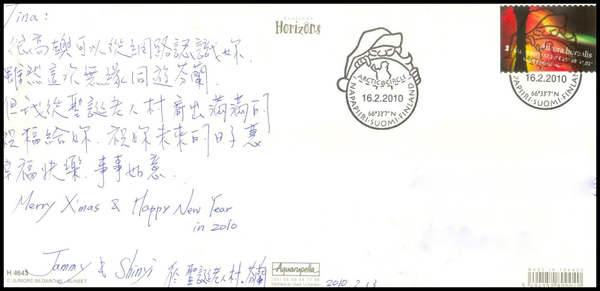 Tina:
很高興可以從網路認識妳
雖然這次無緣同遊芬蘭
但我從聖誕老人村寄出滿滿的
祝福給妳 祝妳未來的日子
幸福快樂 事事如意
Merry X'mas & Happy New Year
in 2010
Jammy & Shinyi 於聖誕老人村.芬蘭
2010.2.13
Horizons
ARCTIC CIRCLE
16.2.2010
66°33'7"N
NAPAPIIRI-SUOMI-FINLAND
Aurora borealis
16.2.2010
66°33'7"N
NAPAPIIRI-SUOMI-FINLAND
H 4643
© JUNIORS BILDARCHIV - SUNSET
Aquarupella
MADE IN FRANCE